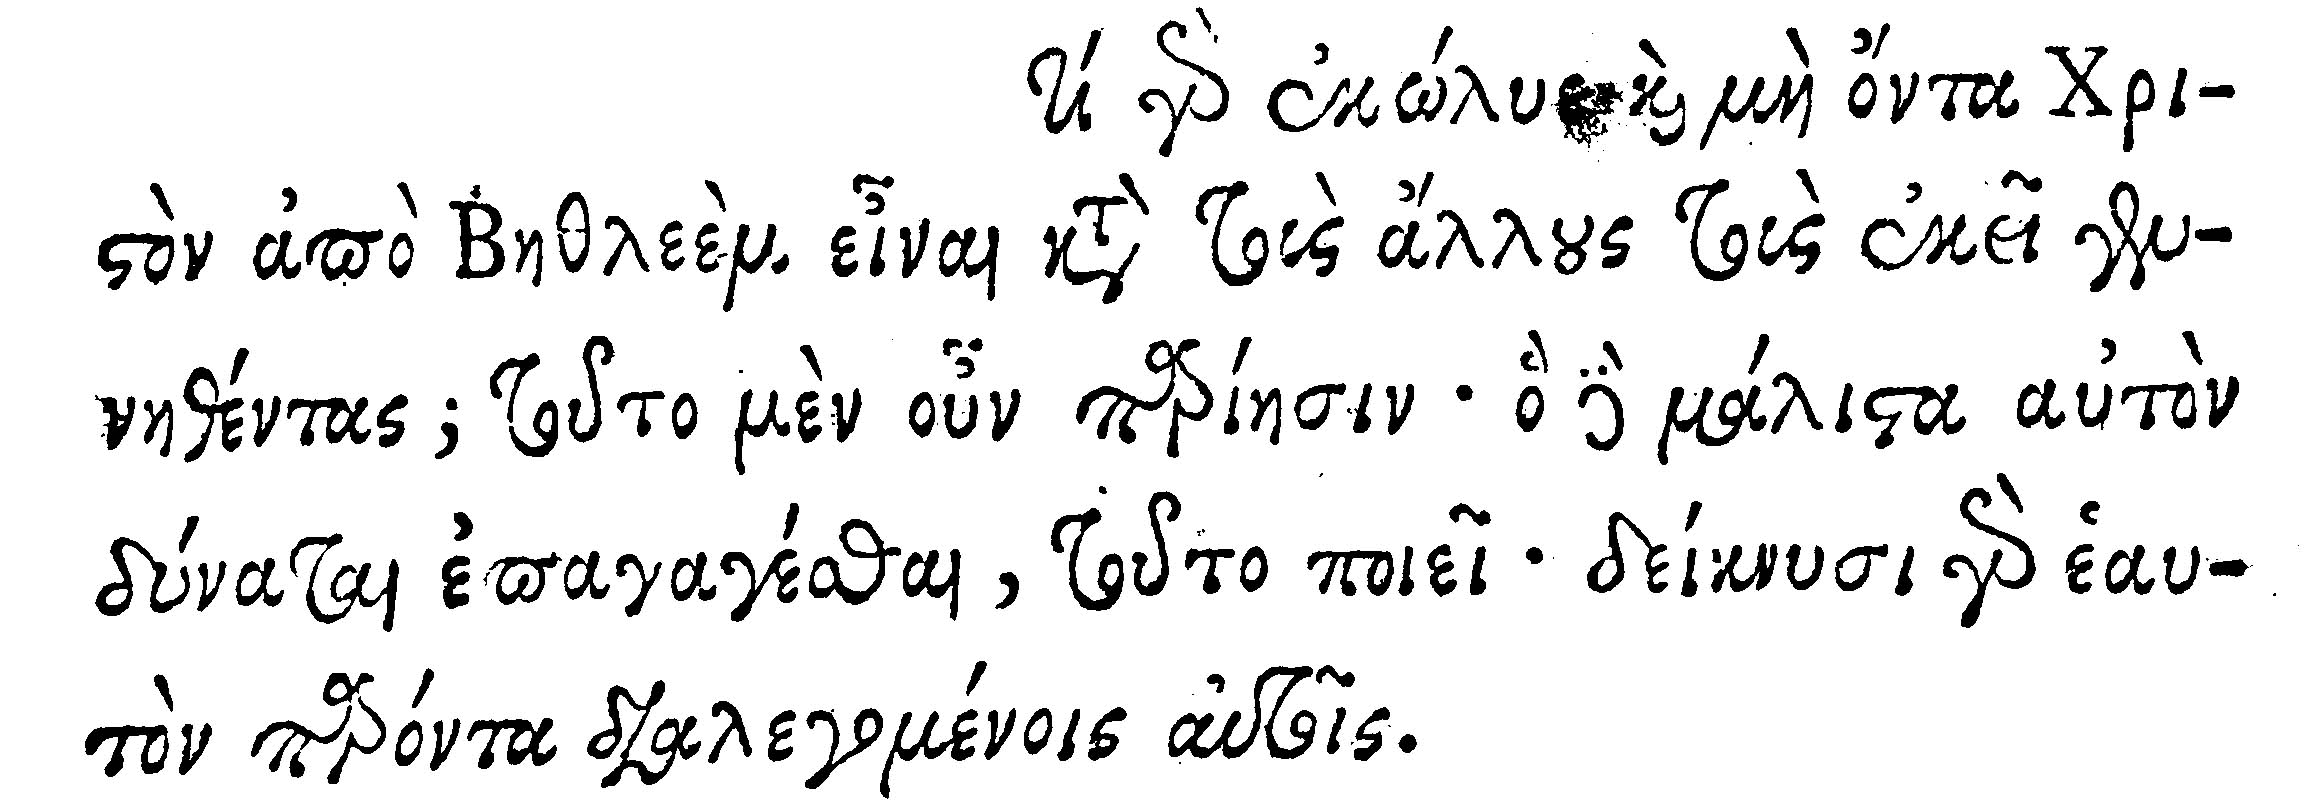 τί γὰρ ἐκώλυε καὶ μὴ ὄντα Χρι-
στὸν ἀπὸ Βηθλεὲμ εἶναι κατὰ τοὺς ἄλλους τοὺς ἐκεῖ γεν-
νηθέντας; τοῦτο μὲν οὖν παρίησιν· ὃ δὲ μάλιστα αὐτὸν
δύναται ἐπαγαγέσθαι, τοῦτο ποιεῖ· δείκνυσι γὰρ ἑαυ-
τὸν παρόντα διαλεγομένοις αὐτοῖς.